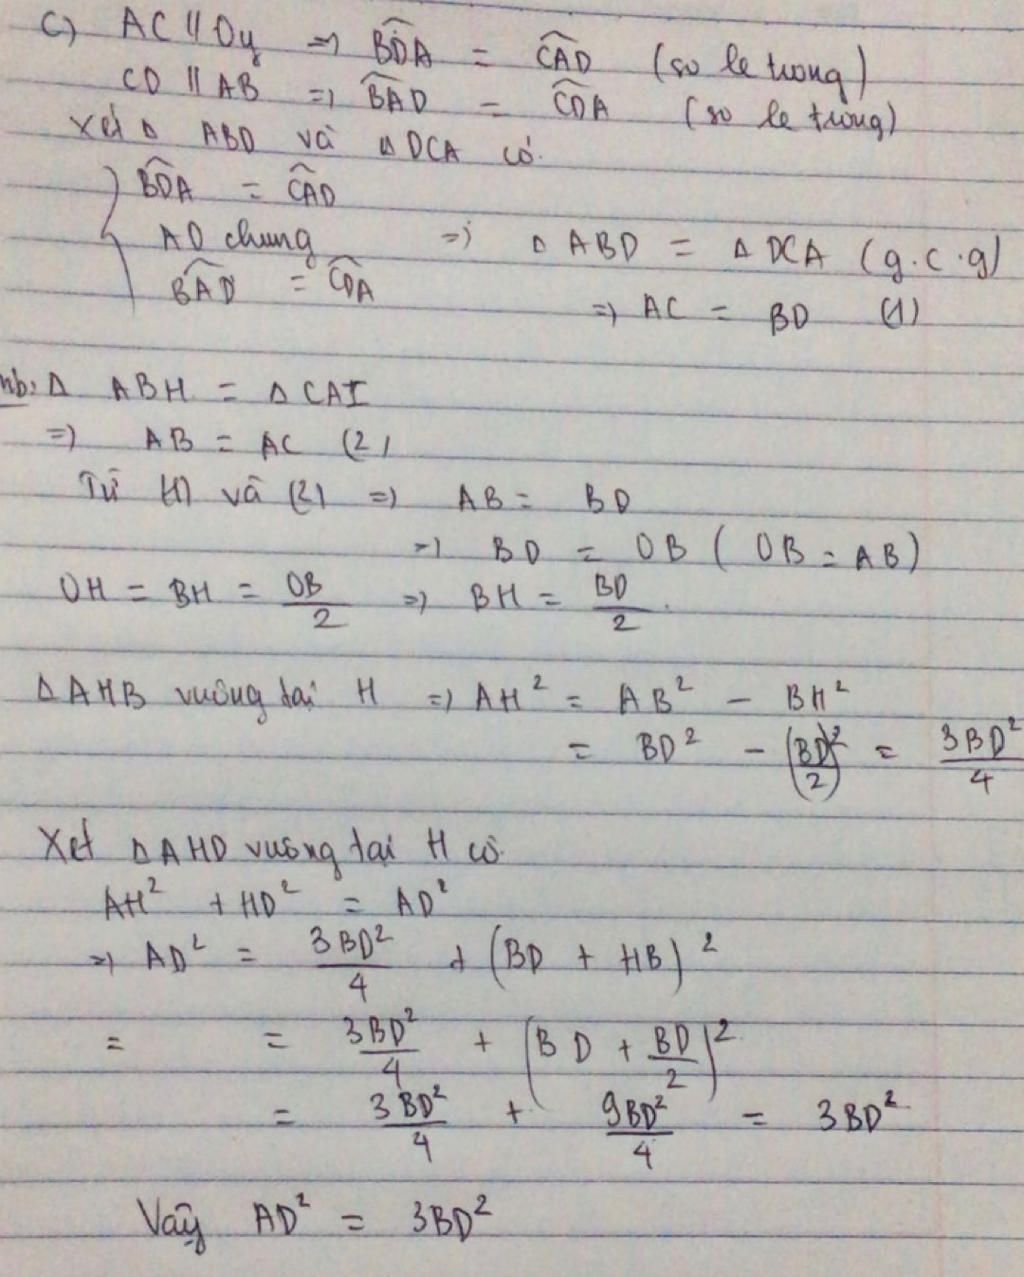 c) AC // Oy => \widehat{BDA} = \widehat{CAD} (so le trong)
CD // AB => \widehat{BAD} = \widehat{CDA} (so le trong)
Xét Δ ABD và Δ DCA có.
\widehat{BDA} = \widehat{CAD}
AD chung => Δ ABD = Δ DCA (g.c.g)
\widehat{BAD} = \widehat{CDA}
=> AC = BD (1)
Δ ABH = Δ CAI
=> AB = AC (2)
Từ (1) và (2) => AB = BD
=> BD = OB (OB = AB)
OH = BH = \frac{OB}{2} => BH = \frac{BD}{2}.
Δ AHB vuông tại H => AH² = AB² - BH²
= BD² - (\frac{BD}{2})² = \frac{3BD²}{4}
Xét Δ AHD vuông tại H có
AH² + HD² = AD²
=> AD² = \frac{3BD²}{4} + (BD + HB)²
= = \frac{3BD²}{4} + (BD + \frac{BD}{2})²
= \frac{3BD²}{4} + \frac{9BD²}{4} = 3BD²
Vậy AD² = 3BD²